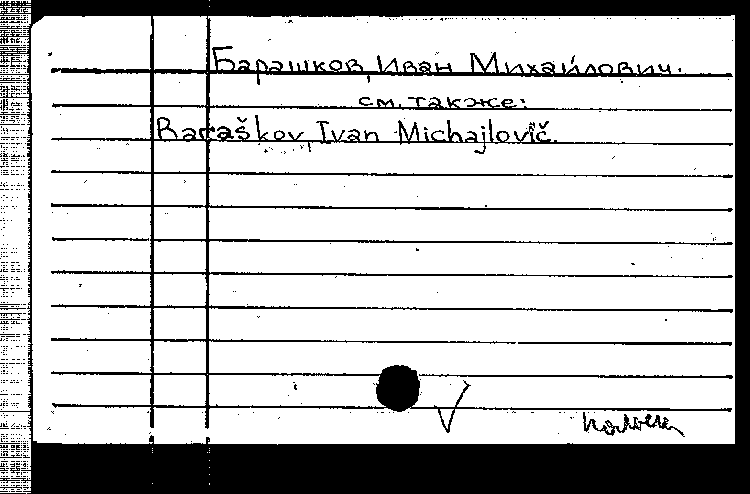 Барашков, Иван Михайлович.
см. также:
Baraškov, Ivan Michajlovič.